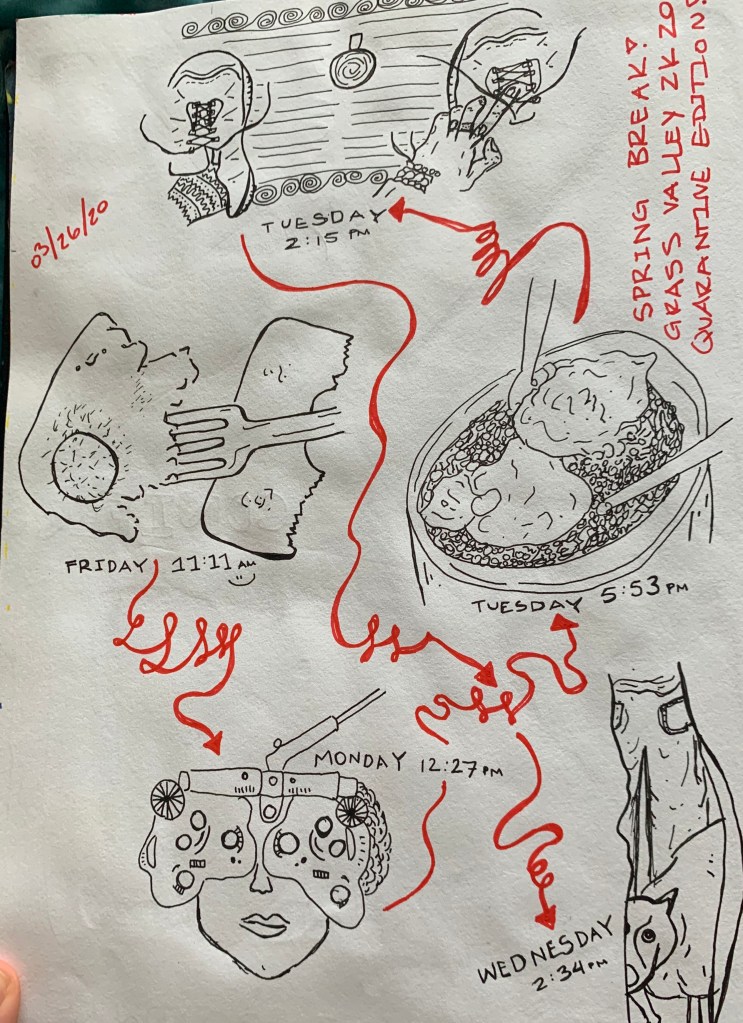 SPRING BREAK!
GRASS VALLEY 2K20
QUARANTINE EDITION!
TUESDAY
2:15 PM
03/26/20
FRIDAY 11:11 AM
TUESDAY 5:53 PM
MONDAY 12:27 PM
WEDNESDAY
2:34 PM